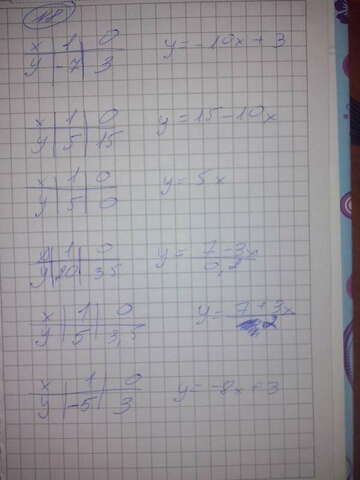 118
x 1 0 y = -10x + 3
y -7 3
x 1 0 y = 15 - 10x
y 5 15
x 1 0 y = 5x
y 5 0
x 1 0 y = 7 - 3x / 0,2
y 20 35
x 1 0 y = 7 + 3x / 2
y 5 3,5
x 1 0 y = -8x + 3
y -5 3